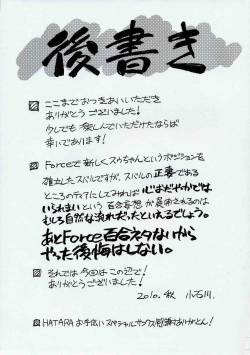 後書き
ここまでおつきあいいただき
ありがとうございました!
少しでも楽しんでいただけたならば
幸いであります!
Forceで新しくスゥちゃんというポジションを
確立したスバルですが、スバルの正妻である
ところのティアにしてみれば心おだやかでは
いられまいという百合妄想が具現されるのは
むしろ自然な流れだったといえるでしょう。
あとForce百合ネタないから
やった後悔はしない。
それでは今回はこの辺で!
ありがとうございました!
2010.秋 小石川
HATARA お手伝いスペシャルサンクス
ありがとん!